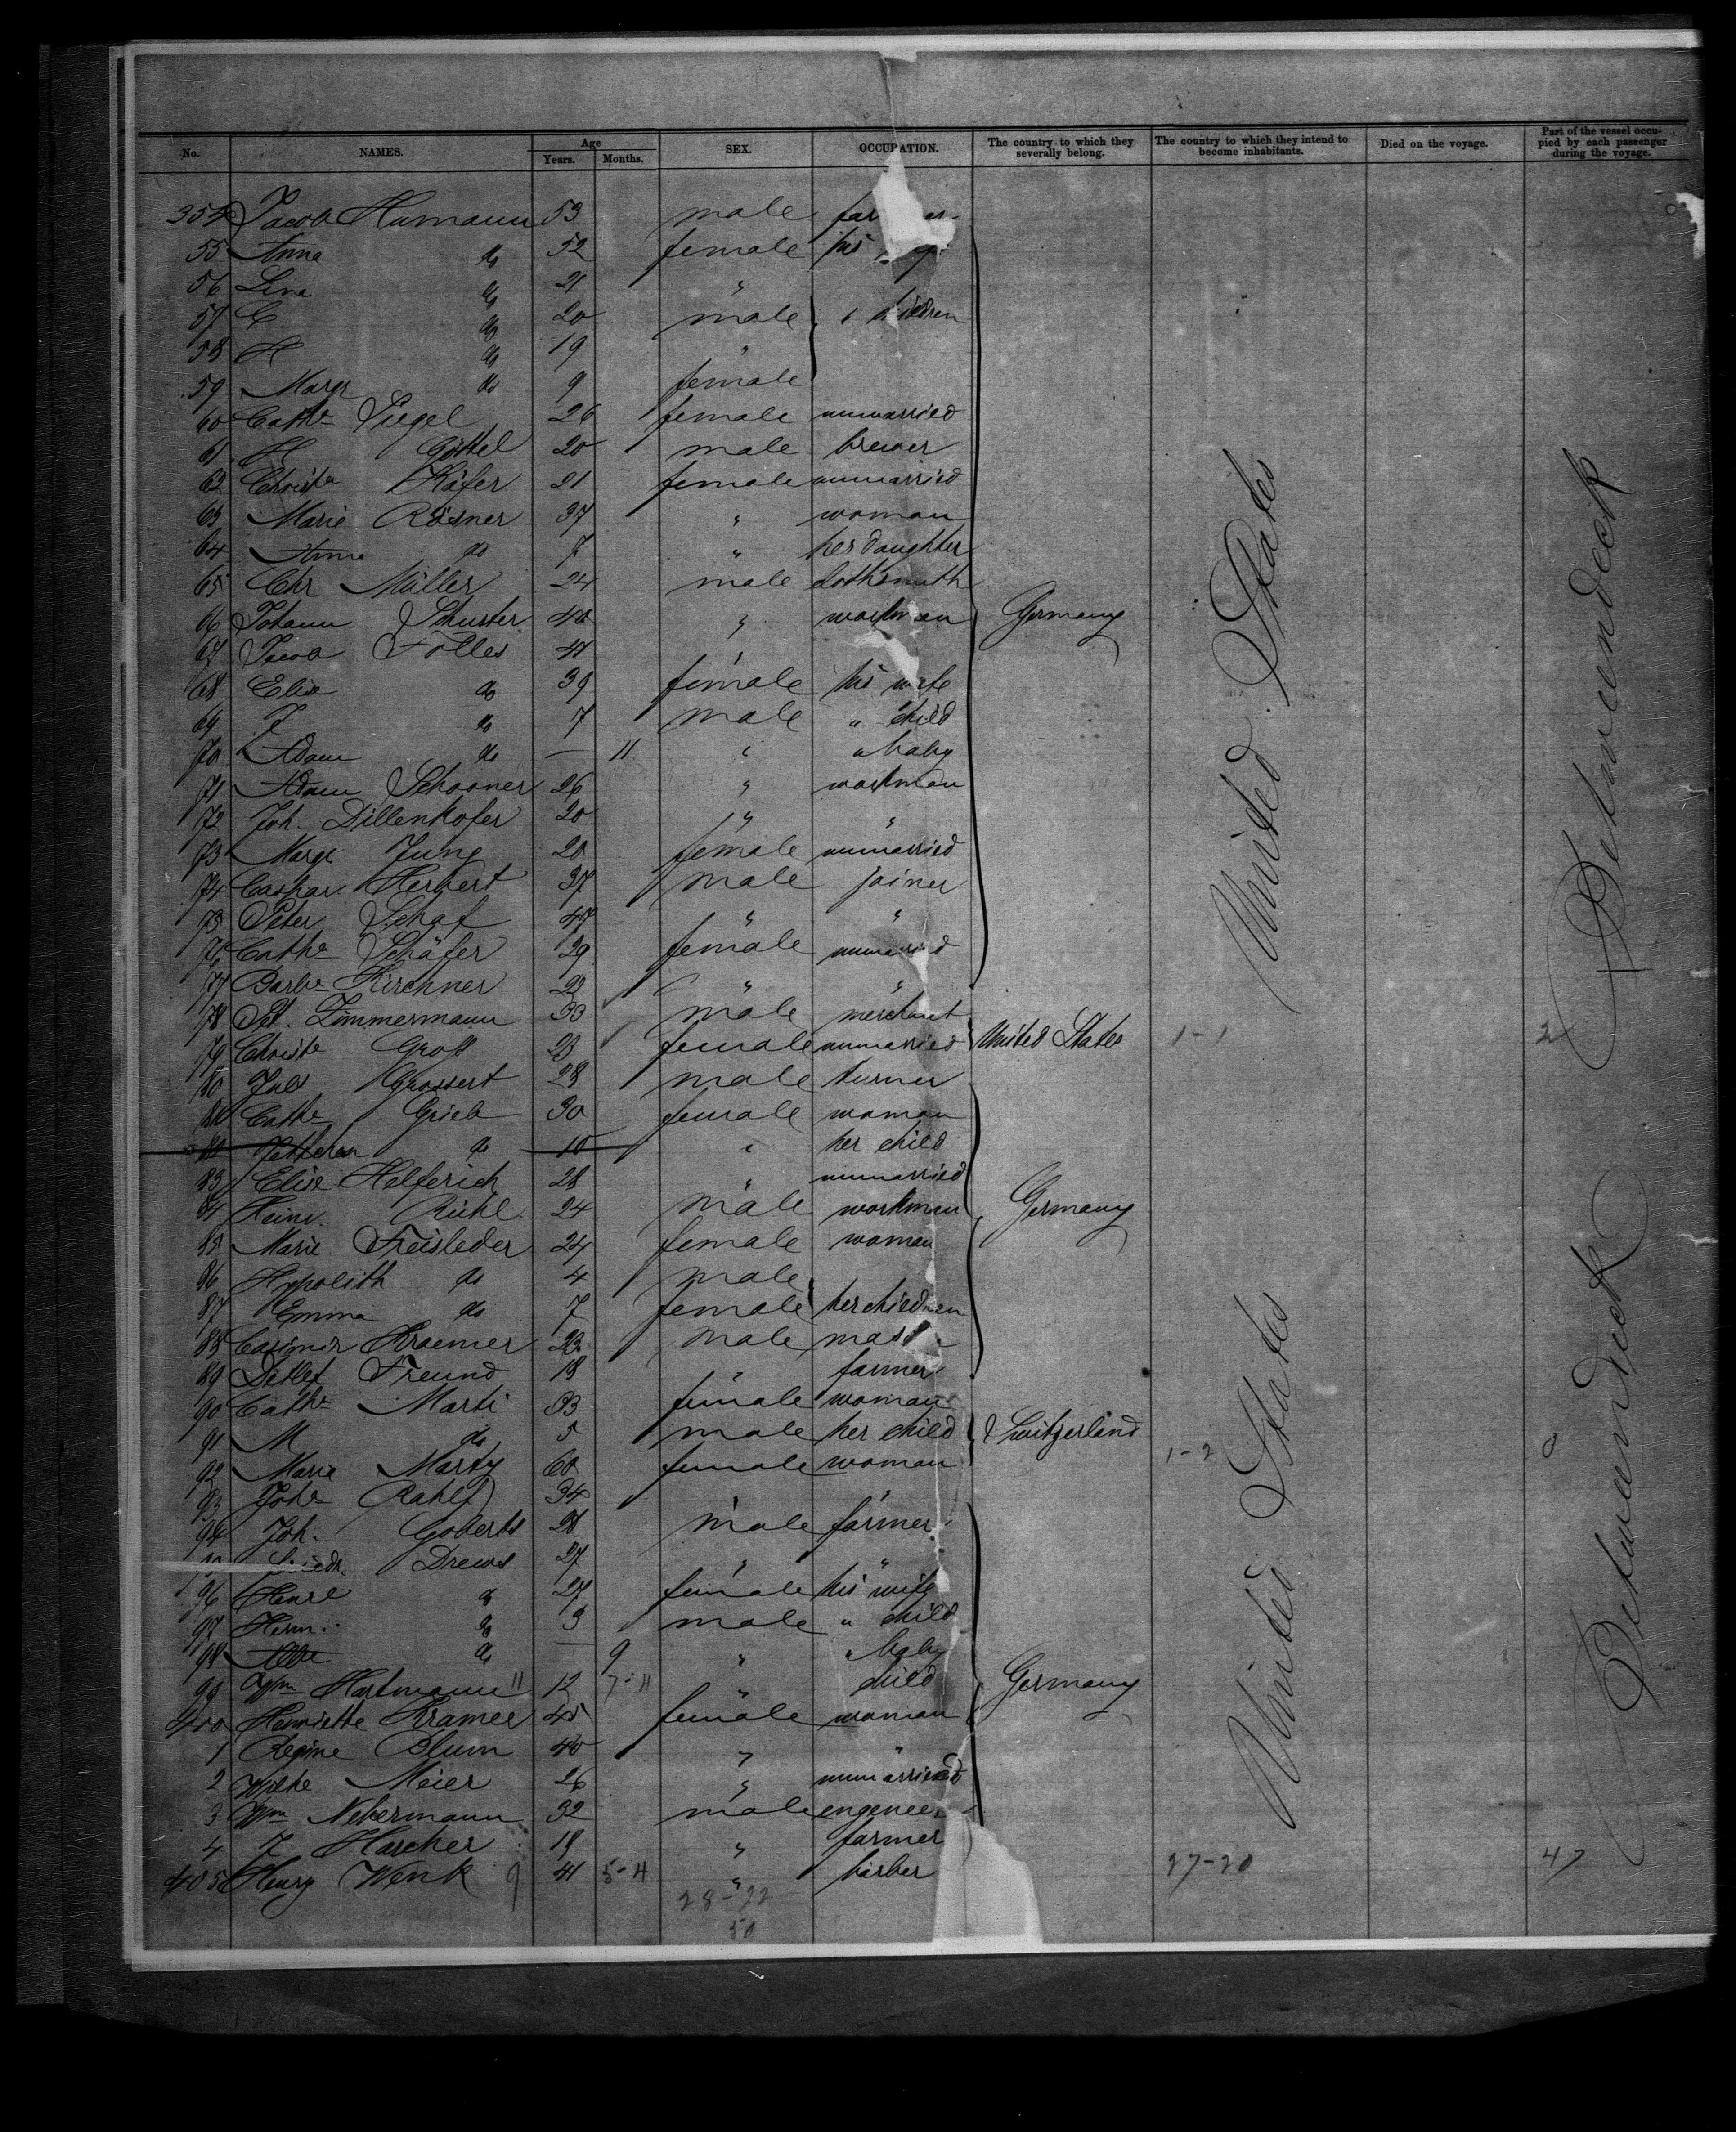 No. NAMES. Age Years. Months. SEX. OCCUPATION. The country to which they severally belong. The country to which they intend to become inhabitants. Died on the voyage. Part of the vessel occupied by each passenger during the voyage.
354 Jacob Humann 53 male
55 Anna do 52 female his
56 Lina do 21 "
57 C do 20 male children
58 H do 19 "
59 Margr do 9 female
60 Cathe Siegel 26 female unmarried
61 H Göttel 20 male brewer
62 Christe Käfer 21 female unmarried
63 Marie Rösner 37 " woman
64 Anna do 7 " her daughter
65 Chr Müller 24 male
66 Johann Schuster 48 " workman Germany
67 Jacob Folles 41 "
68 Elise do 39 female his wife
69 J do 7 male " child
70 Adam do — 11 " " baby
71 Adam Schooner 26 " workman
72 Joh. Dillenkofer 20 " "
73 Margr Jung 20 female unmarried
74 Caspar Herbert 37 male joiner
75 Peter Schaf 47 " "
76 Cathe Schäfer 29 female unmarried
77 Barbe Kirchner 22 " "
78 Pet. Zimmermann 33 male merchant
79 Christe Groß 23 female unmarried United States 1-1 2
80 Juls Grossert 28 male turner
81 Cathe Grieb 30 female woman
82 do 10 " her child
83 Elise Helferich 28 " unmarried
84 Heinr. Riehl 24 male workman Germany
85 Marie Freisleder 24 female woman
86 Hypolith do 4 male
87 Emma do 7 female her children
88 Casimir Kraemer 23 male
89 Detlef Freund 18 " farmer
90 Cathe Marti 33 female woman
91 M do 5 male her child Switzerland
92 Marie Marty 60 female woman 1-2
93 Johe Rahlf 34 " "
94 Joh. Goberts 28 male farmer
Drews 27 " "
96 Henre do 27 female his wife
97 Herm. do 3 male " child
98 do — 9 " baby
99 Wm Hartmann 12 7-11 " child Germany
400 Henriette Kramer 45 female woman
1 Regine Blum 40 " "
2 Wilhe Meier 26 " unmarried
3 Wm Nebermann 32 male engeneer
4 J Harcher 18 " farmer
405 Henry Wenk 41 5-4 " barber 27-20 47
28-22
50
United States
Betweendeck
United States
Betweendeck